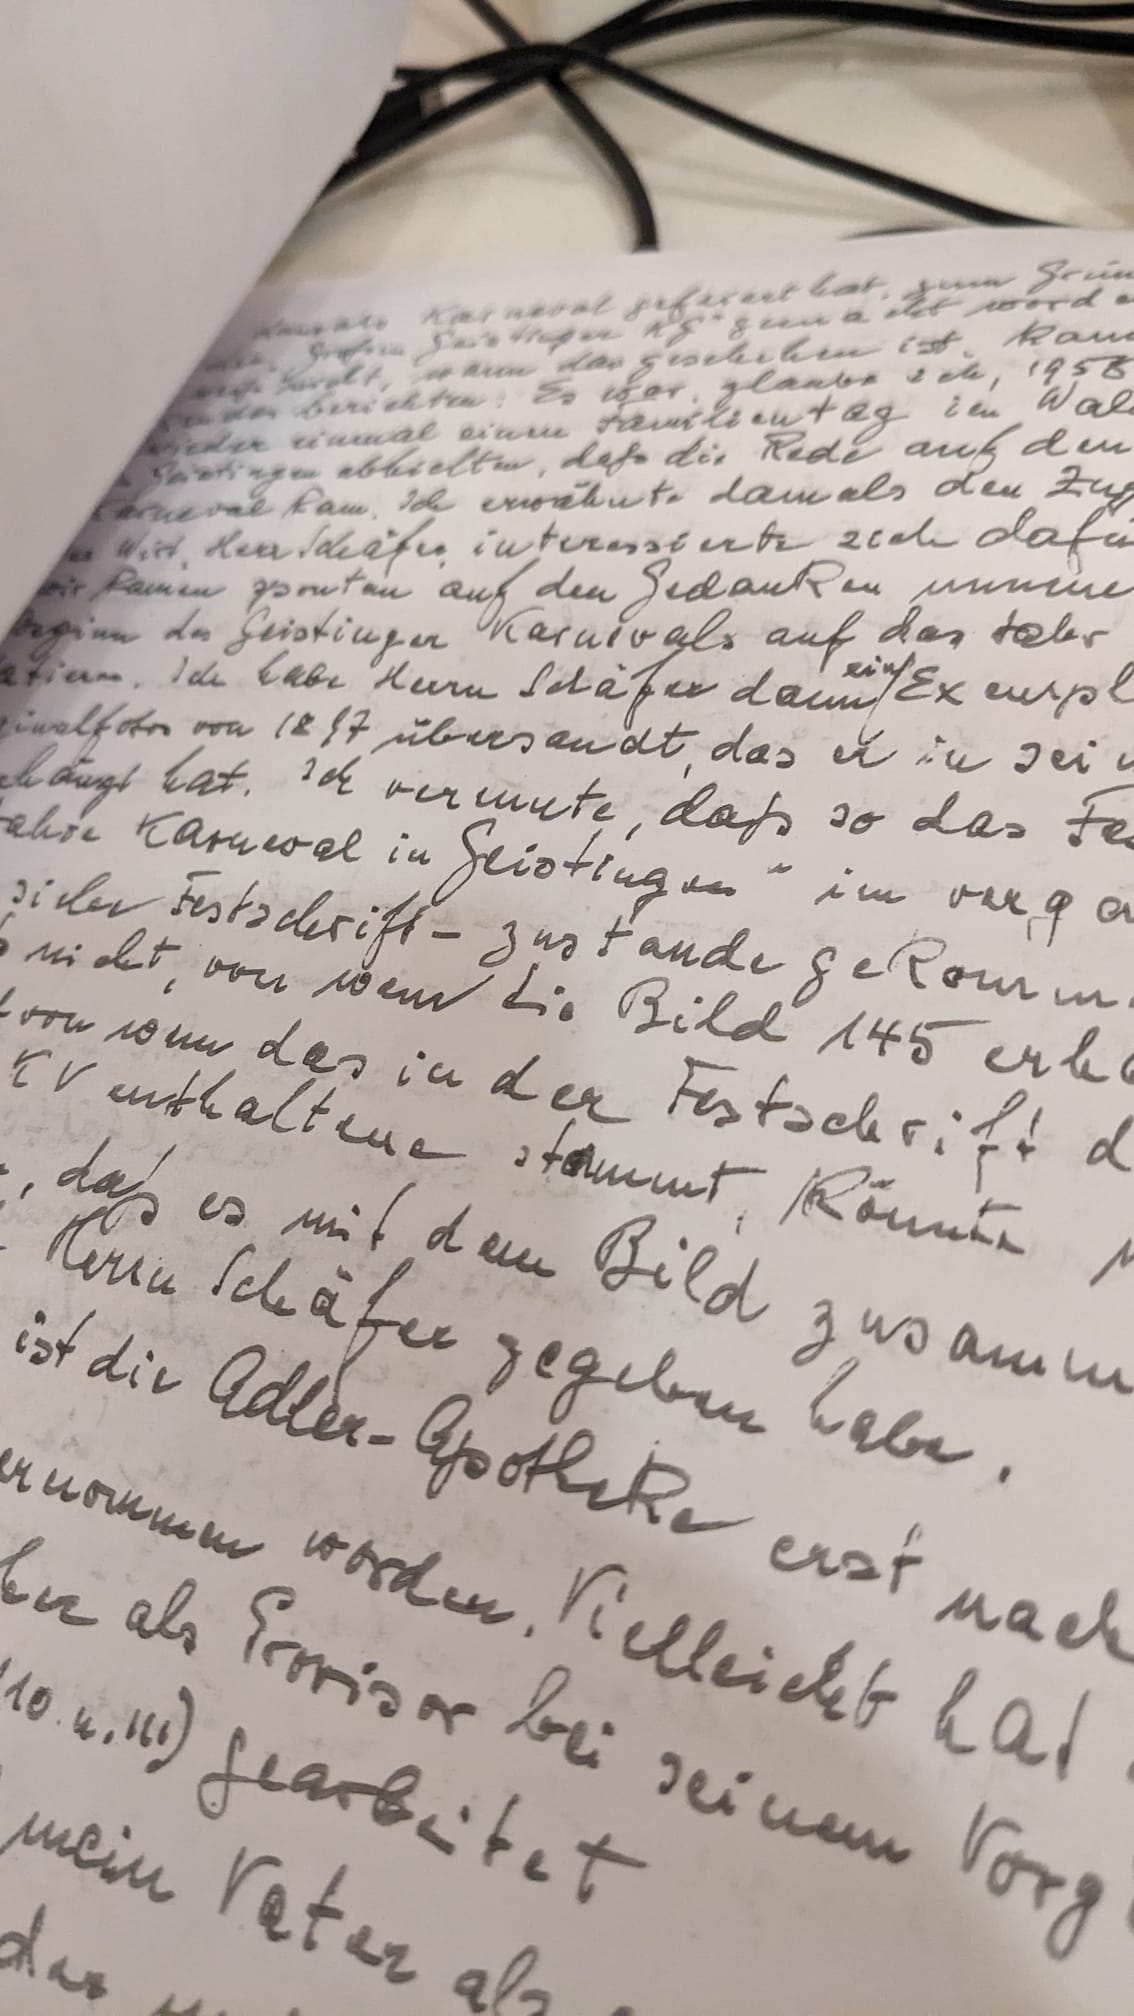 Karneval gefeiert hat, zum Grün
Großen Geistinger KG" gemacht word
nicht, wann das geschehen ist. Kann
berichten: Es war, glaube ich, 1958
wieder einmal einen Familientag im Wal
Geistingen abhielten, daß die Rede auf den
Karneval kam. Ich erwähnte damals den Zug
Wirt, Herr Schäfer, interessierte sich dafü
wir kamen spontan auf den Gedanken nunme
Beginn des Geistinger Karnevals auf das Jahr
atieren. Ich habe Herrn Schäfer dann ein Exempl
ginalfotos von 1897 übersandt, das er in sei
hängt hat. Ich vermute, daß so das Fes
Jahre Karneval in Geistingen" im verga
sicher Festschrift - zustande gekomm
nicht, von wem Sie Bild 145 erha
von wem das in der Festschrift d
KV enthaltene stammt, könnte
, daß es mit dem Bild zusamm
Herrn Schäfer gegeben habe.
ist die Adler-Apotheke erst nach
ernommen worden. Vielleicht hat
her als Provisor bei seinem Vorg
110 u. 111) gearbeitet
mein Vater als
der